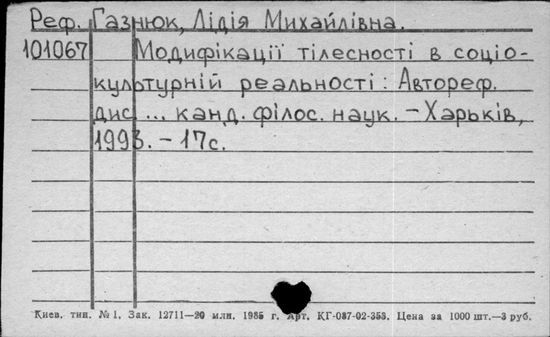 Реф. Газнюк, Лідія Михайлівна.
101067 Модифікації тілесності в соціо-
культурній реальності: Автореф.
дис ... канд. філос. наук. – Харьків,
1993. – 17с.
Киев. тип. № 1. Зак. 12711—20 млн. 1985 г. Арт. КГ-087-02-353. Цена за 1000 шт.—3 руб.